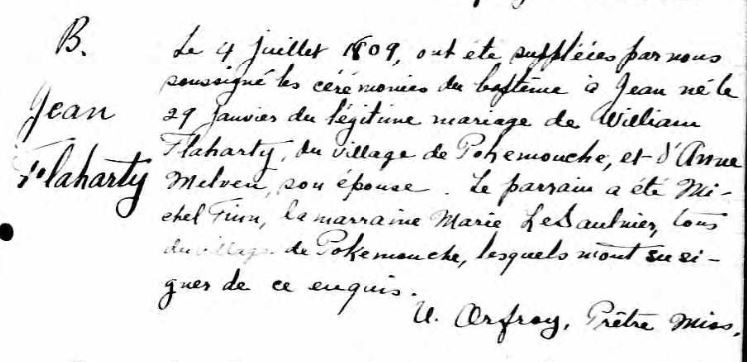 B.
Jean
Flaharty
Le 4 juillet 1809, ont été suppléées par nous
soussigné les cérémonies du baptême à Jean né le
29 Janvier du légitime mariage de William
Flaharty, du village de Pokemouche, et d'Anne
Melven, son épouse. Le parrain a été Mi-
chel Finn, la marraine Marie LeSaulnier, tous
du village de Pokemouche, lesquels n'ont su si-
gner de ce enquis.
U. Orfroy, Prêtre Miss.